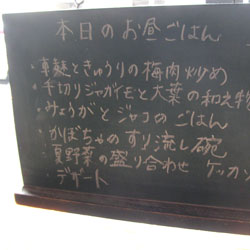 本日のお昼ごはん
・車麩ときゅうりの梅肉炒め
・千切りジャガモと大葉の和え物
・みょうがとジャコのごはん
・かぼちゃのすり流し碗
・夏野菜の盛り合わせ ケッカソ
・デザート